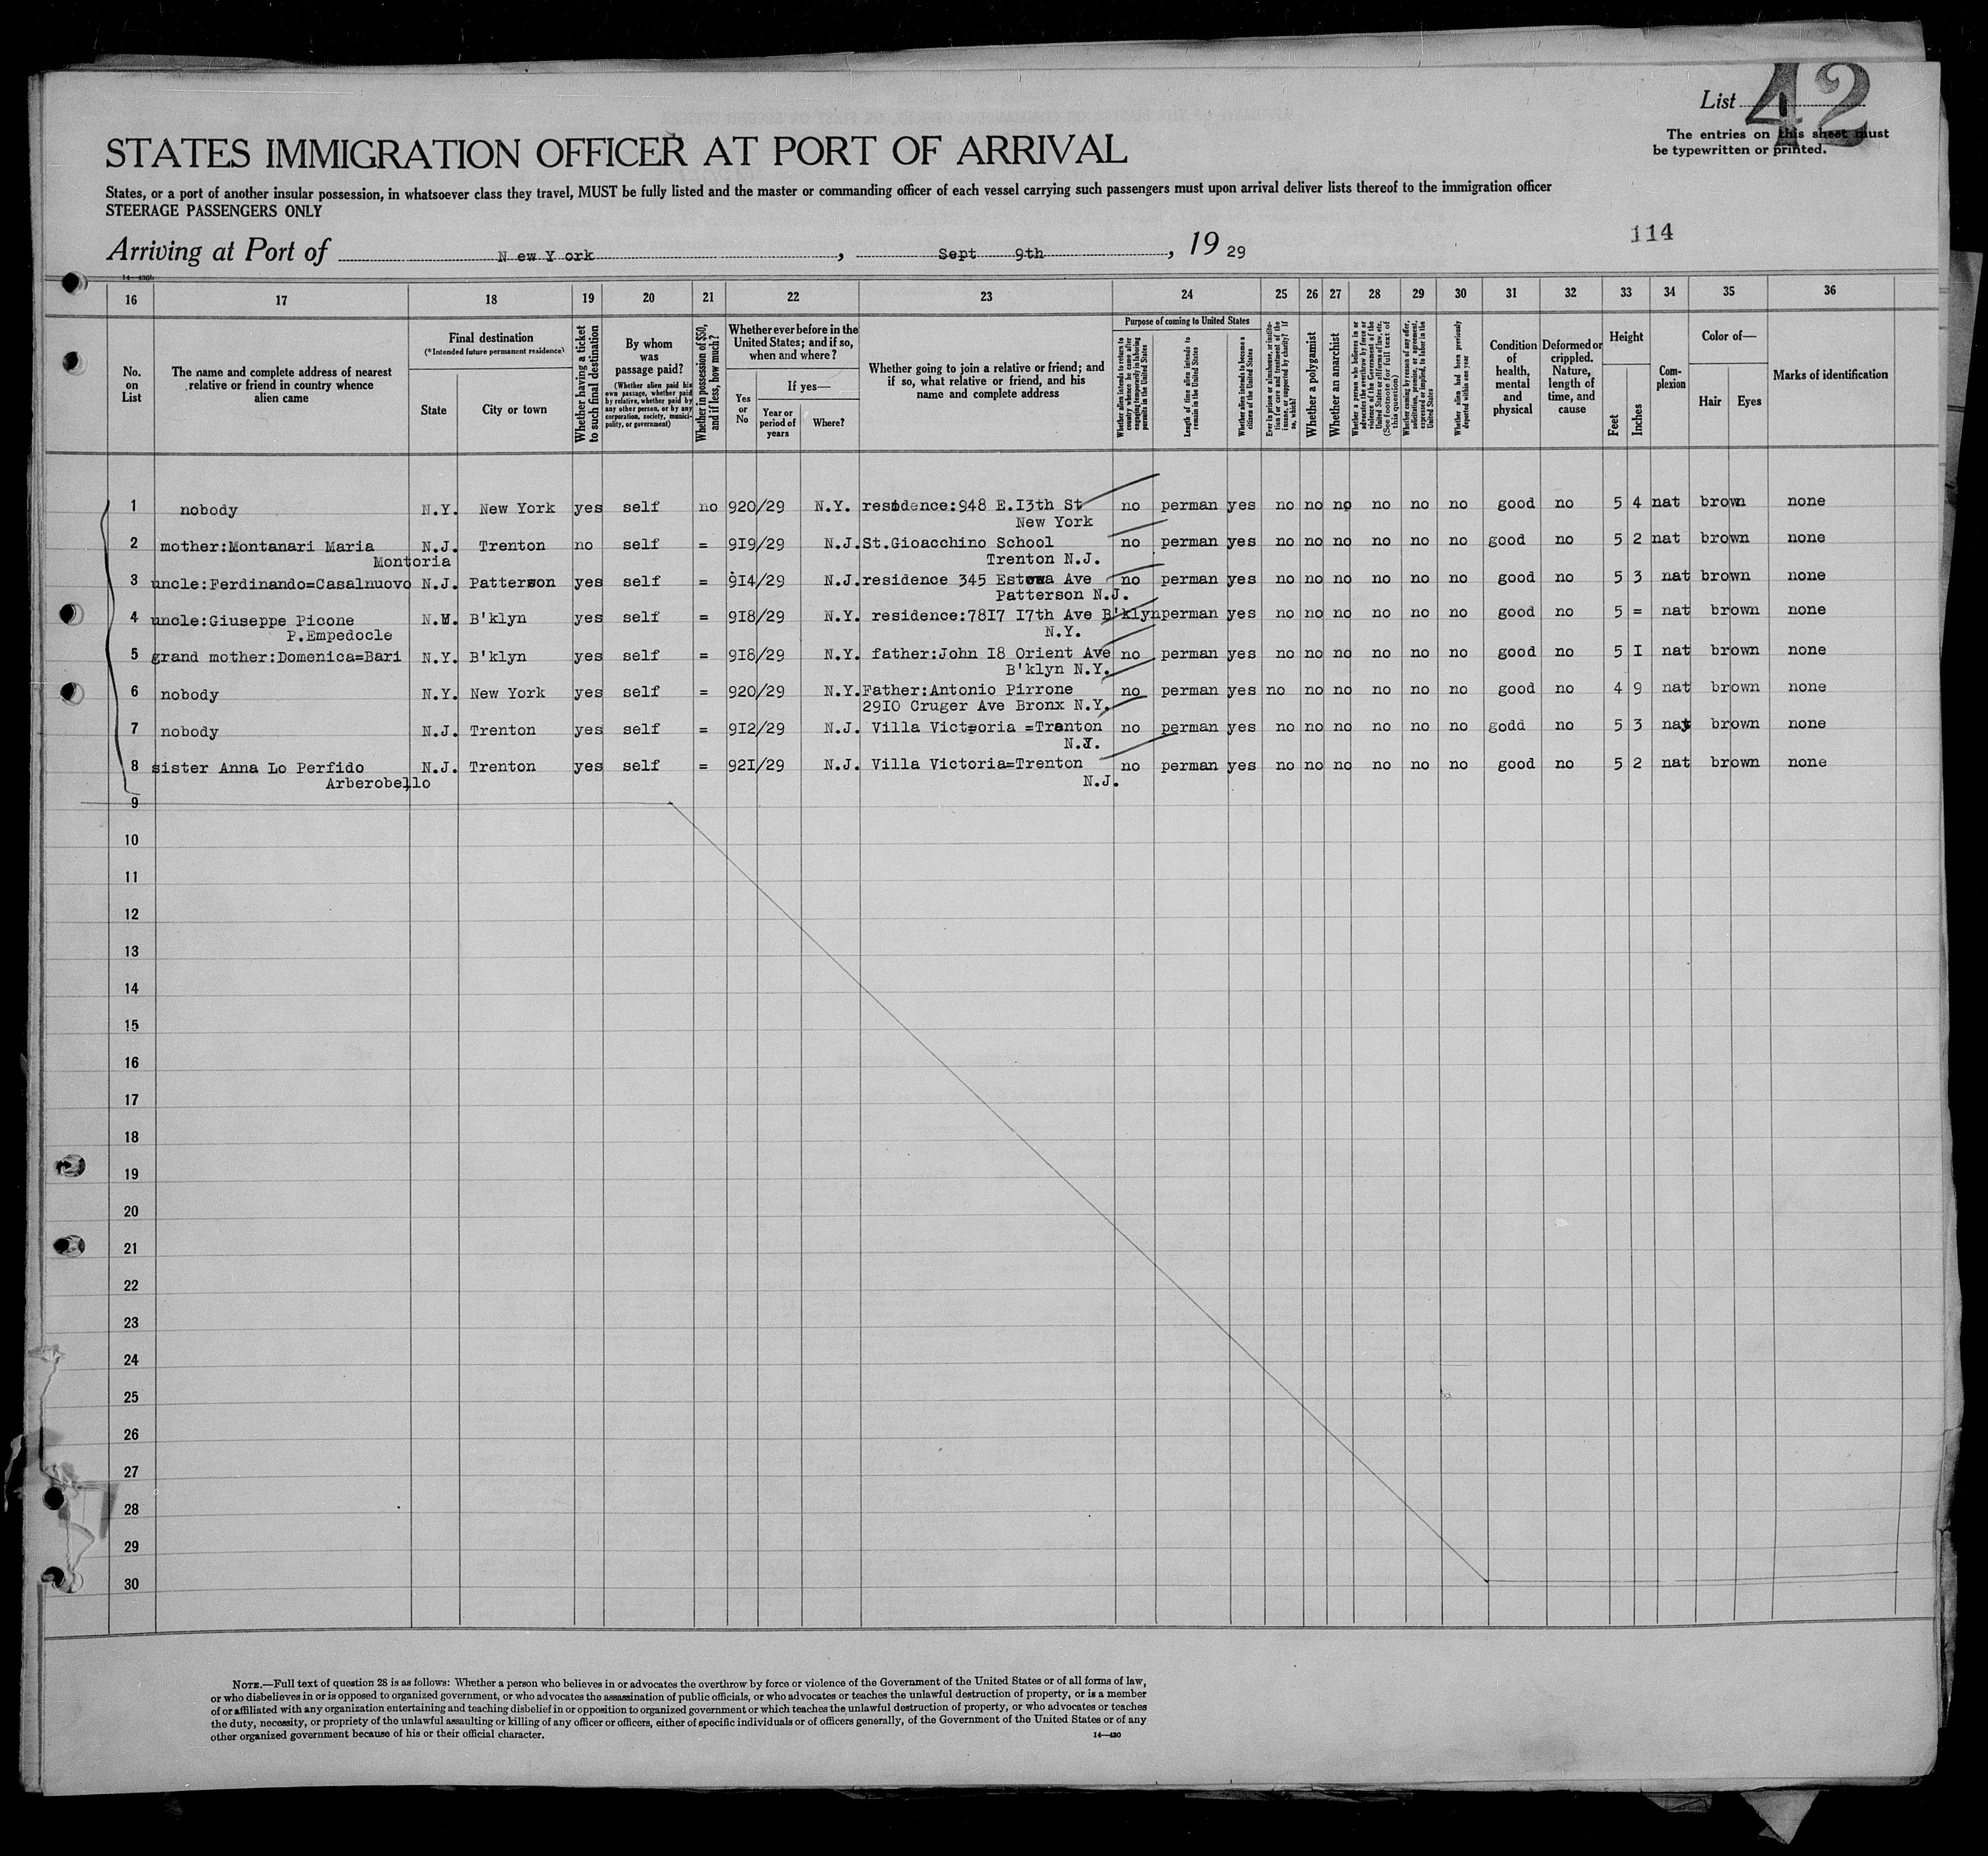 List 42
The entries on this sheet must
be typewritten or printed.
STATES IMMIGRATION OFFICER AT PORT OF ARRIVAL
States, or a port of another insular possession, in whatsoever class they travel, MUST be fully listed and the master or commanding officer of each vessel carrying such passengers must upon arrival deliver lists thereof to the immigration officer
STEERAGE PASSENGERS ONLY
114
Arriving at Port of New Y ork , Sept 9th , 19 29
14—430b
16 17 18 19 20 21 22 23 24 25 26 27 28 29 30 31 32 33 34 35 36
No. on List
The name and complete address of nearest relative or friend in country whence alien came
Final destination
(*Intended future permanent residence)
State
City or town
Whether having a ticket to such final destination
By whom was passage paid?
(Whether alien paid his own passage, whether paid by relative, whether paid by any other person, or by any corporation, society, municipality, or government)
Whether in possession of $50, and if less, how much?
Whether ever before in the United States; and if so, when and where?
Yes or No
If yes—
Year or period of years
Where?
Whether going to join a relative or friend; and if so, what relative or friend, and his name and complete address
Purpose of coming to United States
Whether alien intends to return to country whence he came after engaging temporarily in laboring pursuits in the United States
Length of time alien intends to remain in the United States
Whether alien intends to become a citizen of the United States
Ever in prison or almshouse, or institution for care and treatment of the insane, or supported by charity? If so, which?
Whether a polygamist
Whether an anarchist
Whether a person who believes in or advocates the overthrow by force or violence of the Government of the United States or all forms of law, etc. (See footnote for full text of this question)
Whether coming by reason of any offer, solicitation, promise, or agreement, expressed or implied, to labor in the United States
Whether alien had been previously deported within one year
Condition of health, mental and physical
Deformed or crippled. Nature, length of time, and cause
Height
Feet
Inches
Com-plexion
Color of—
Hair
Eyes
Marks of identification
1 nobody N.Y. New York yes self no 920/29 N.Y. residence:948 E.I3th St no perman yes no no no no no no good no 5 4 nat brown none
New York
2 mother:Montanari Maria N.J. Trenton no self = 9I9/29 N.J. St.Gioacchino School no perman yes no no no no no no good no 5 2 nat brown none
Montoria Trenton N.J.
3 uncle:Ferdinando=Casalnuovo N.J. Patterson yes self = 9I4/29 N.J. residence 345 Ave no perman yes no no no no no no good no 5 3 nat brown none
Patterson N.J.
4 uncle:Giuseppe Picone B'klyn yes self = 9I8/29 N.Y. residence:78I7 I7th Ave B'klyn perman yes no no no no no no good no 5 = nat brown none
P.Empedocle N.Y.
5 grand mother:Domenica=Bari N.Y. B'klyn yes self = 9I8/29 N.Y. father:John I8 Orient Ave no perman yes no no no no no no good no 5 I nat brown none
B'klyn N.Y.
6 nobody N.Y. New York yes self = 920/29 N.Y. Father:Antonio Pirrone no perman yes no no no no no no good no 4 9 nat brown none
29I0 Cruger Ave Bronx N.Y.
7 nobody N.J. Trenton yes self = 9I2/29 N.J. Villa Victeoria =Trenton no perman yes no no no no no no godd no 5 3 nat brown none
N.J.
8 sister Anna Lo Perfido N.J. Trenton yes self = 92I/29 N.J. Villa Victoria=Trenton no perman yes no no no no no no good no 5 2 nat brown none
Arberobello N.J.
9
10
11
12
13
14
15
16
17
18
19
20
21
22
23
24
25
26
27
28
29
30
NOTE.—Full text of question 28 is as follows: Whether a person who believes in or advocates the overthrow by force or violence of the Government of the United States or of all forms of law,
or who disbelieves in or is opposed to organized government, or who advocates the assassination of public officials, or who advocates or teaches the unlawful destruction of property, or is a member
of or affiliated with any organization entertaining and teaching disbelief in or opposition to organized government or which teaches the unlawful destruction of property, or who advocates or teaches
the duty, necessity, or propriety of the unlawful assaulting or killing of any officer or officers, either of specific individuals or of officers generally, of the Government of the United States or of any
other organized government because of his or their official character.
14—430